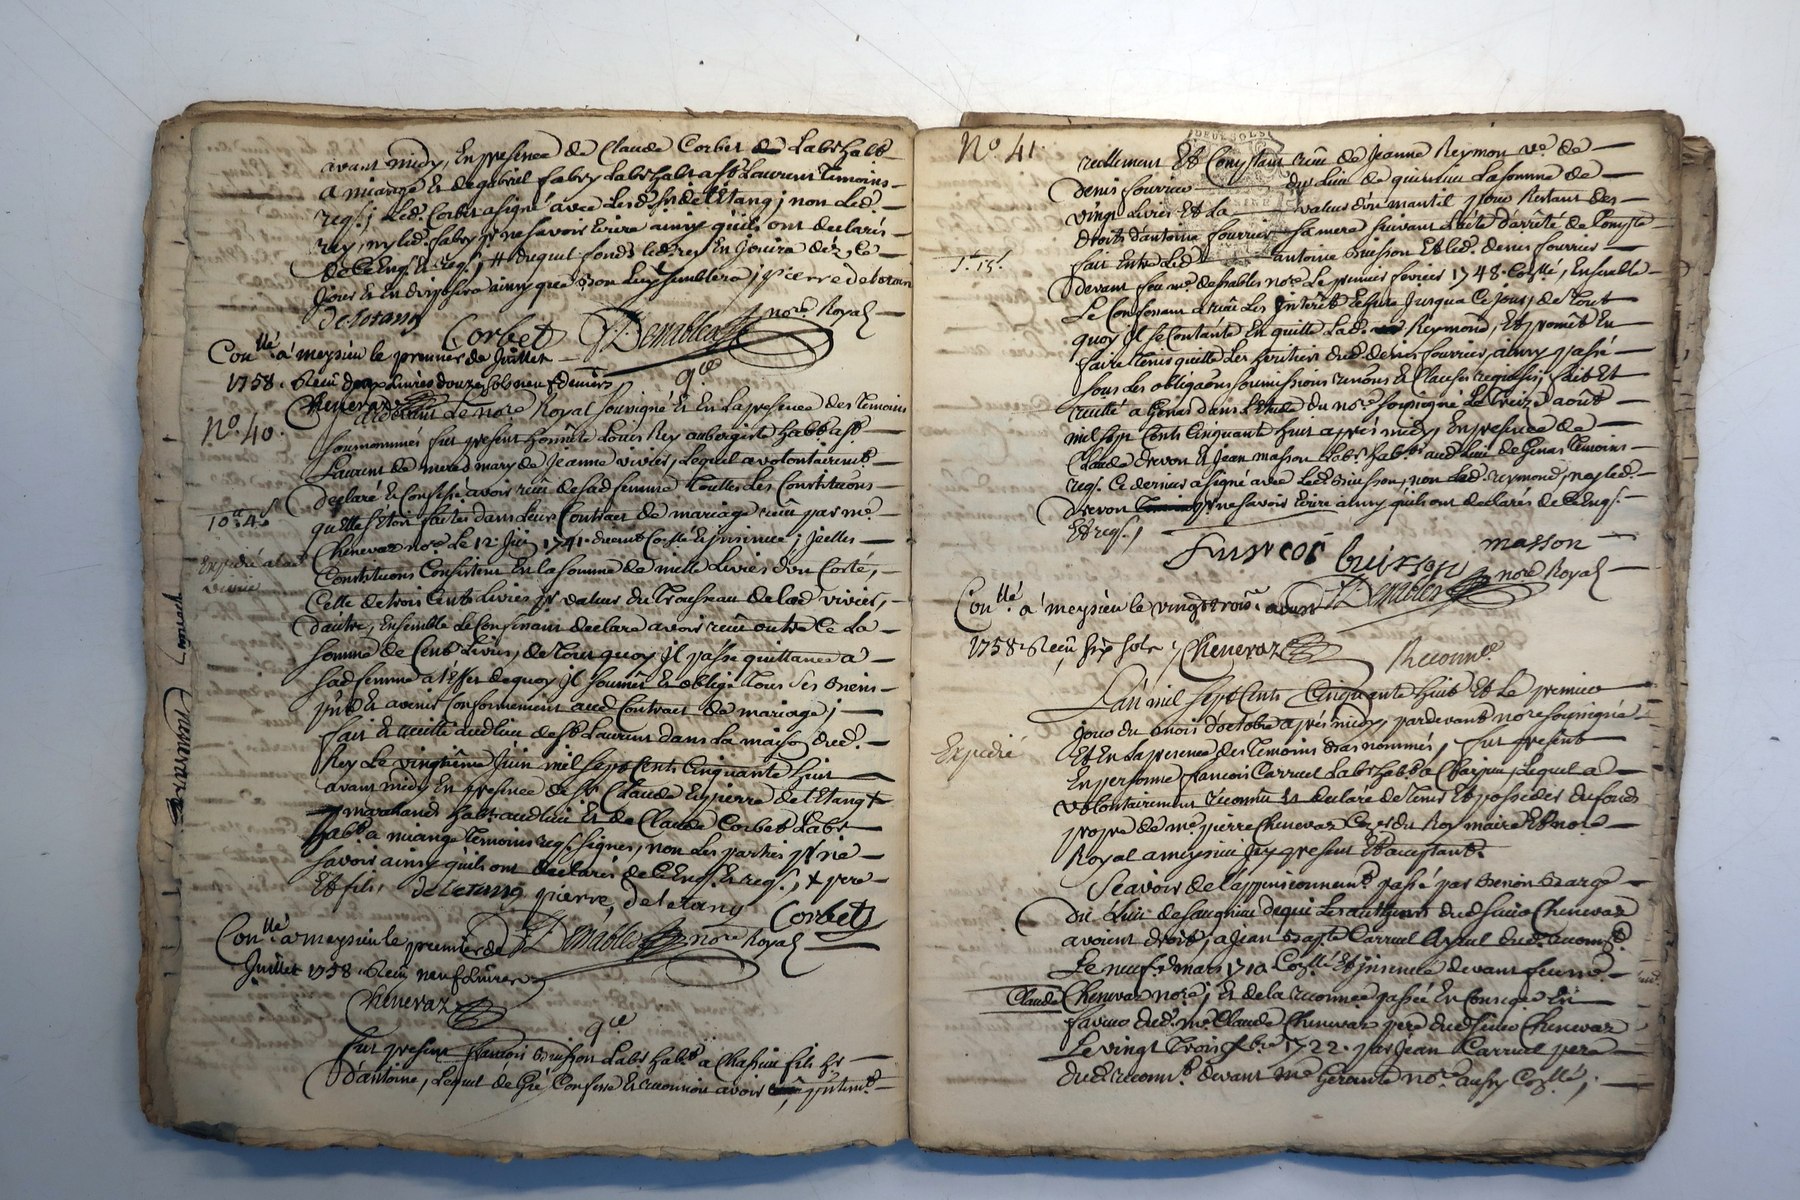 avant midy, En presence de Claude Corbet Labr habt
a miange et de gabriel fabry Labr habt a St Laurent temoins
req.s ; Led. Corbet a signé avec Lesd. Srs de Letang ; non Led.
rey, ny led. fabry pr ne savoir Ecrire ainsy quils ont declarés
de ce Enq. et req.s ; # duquel fonds led. rey En Jouira dez ce
Jour et En disposera ainsy que bon Luy semblera ;
de letang Corbet Demables nore Royal
Conllé a meysieu le premier de Juillet
1758. Reçu deux Livres douze sols neuf deniers
Chenevaz
qce
No. 40.
Pardevant Le nore Royal soussigné et En La presence des temoins
sousnommés fut present honnête Louis Rey aubergiste habt a St
Laurent de mure mary de Jeanne vivier, Lequel a volontairemt
declaré et Confessé avoir reçu de sad. femme toutes Les Constituons
10lt 4s
quelle s'étoit faites dans Leur Contract de mariage reçu par me
Chenevaz nore Le 12 Juin 1741. duemt Conllé et insinué ; Icelles
Expedié a lad.
vivier
Constituons Consistent En la somme de mille Livres d'un Coté,
Celle de trois Cents Livres pr valeur du trousseau de lad. vivier,
d'autre, Ensemble le Confessant declare avoir reçu outre ce La
somme de Cent Livres, de tout quoy Il passe quittance a
sad. femme a l'effet de quoy Il soumet et oblige tous ses biens
pnts et avenir Conformement aud. Contract de mariage ;
fait et recité aud. lieu de St Laurent dans La maison dud.
Rey Le vingtième Juin mil sept Cents Cinquante huit
avant midy En presence de Sr Claude et pierre de letang +
marchands habts aud. lieu et de Claude Corbet Labr
habt a miange temoins req.s signés, non Les parties pr ne
savoir ainsy quils ont declarés de ce Enq. et req.s, + pere
Et fils, de letang pierre de letang Corbet
Conllé a meysieu le premier de Demables nore Royal
Juillet 1758. Reçu neuf Livres
Chenevaz
qce
fut present francois buisson Labr habt a Chassieu fils de
d'antoine, Lequel de Gré Confesse et reconnoit avoir
No. 41.
reellement Et Comptant reçu de Jeanne Reymon ve. de
denis fourrier du Lieu de La somme de
vingt Livres Et La valeur d'un mantil pour Restant des
droits d'antoine fourrier sa mere suivant L'acte d'arrêté de Compte
1lt 15s
fait Entre Led. antoine buisson Et led. denis fourrier
devant feu me desables nore Le premier fevrier 1748. Conllé, Ensemble
Le Confessant a reçu Les Interêts Echus Jusqua Ce jour, de tout
quoy Il se Contente En quitte Lad. Reymond, Et promet En
faire tenir quitte Les heritiers dud. denis fourrier, ainsy passé
sous Les obligaons soumissions renons et Clauses requises ; fait Et
recité a Genas dans L'Etude du nore soussigné Le treize d'août
mil sept Cents Cinquante huit apres midy En presence de
Claude drevon Et Jean masson Labrs habts aud. lieu de Genas temoins
req.s Ce dernier a signé avec Led. buisson, non Lad. reymond, ny led.
drevon pr ne savoir Ecrire ainsy quils ont declarés de ce Enq.
Et req.s ;
francois buisson masson
Demables nore Royal
Conllé a meysieu le vingt trois aout
1758. Reçu six sols Chenevaz
Reconnce
L'an mil sept Cents Cinquante huit Et Le premier
jour du mois d'octobre apres midy, pardevant nore soussigné
Expedié
Et En La presence des temoins bas nommés, fut present
En personne francois Carruel Labr habt a Lequel a
volontairement reconnu et declaré de tenir Et posseder du fonds
propre de me pierre Chenevaz Coner du Roy maire Et nore
Royal a meysieu Icy present Et acceptant.
Sçavoir de L'appensionnemt passé par benoit barge
du Lieu de de qui Les autheurs dud. sieur Chenevaz
avoient droit, a Jean bapte Carruel ayeul dud. reconnt
Le neuf. mars 1710. Conllé Et insinué devant feu me
Claude Chenevaz nore ; Et de la reconnce passée En Consiqce En
faveur dud. me Claude Chenevaz pere dud. sieur Chenevaz
Le vingt trois 1722. par Jean Carruel pere
dud. reconnt. devant me nore aussy Conllé,